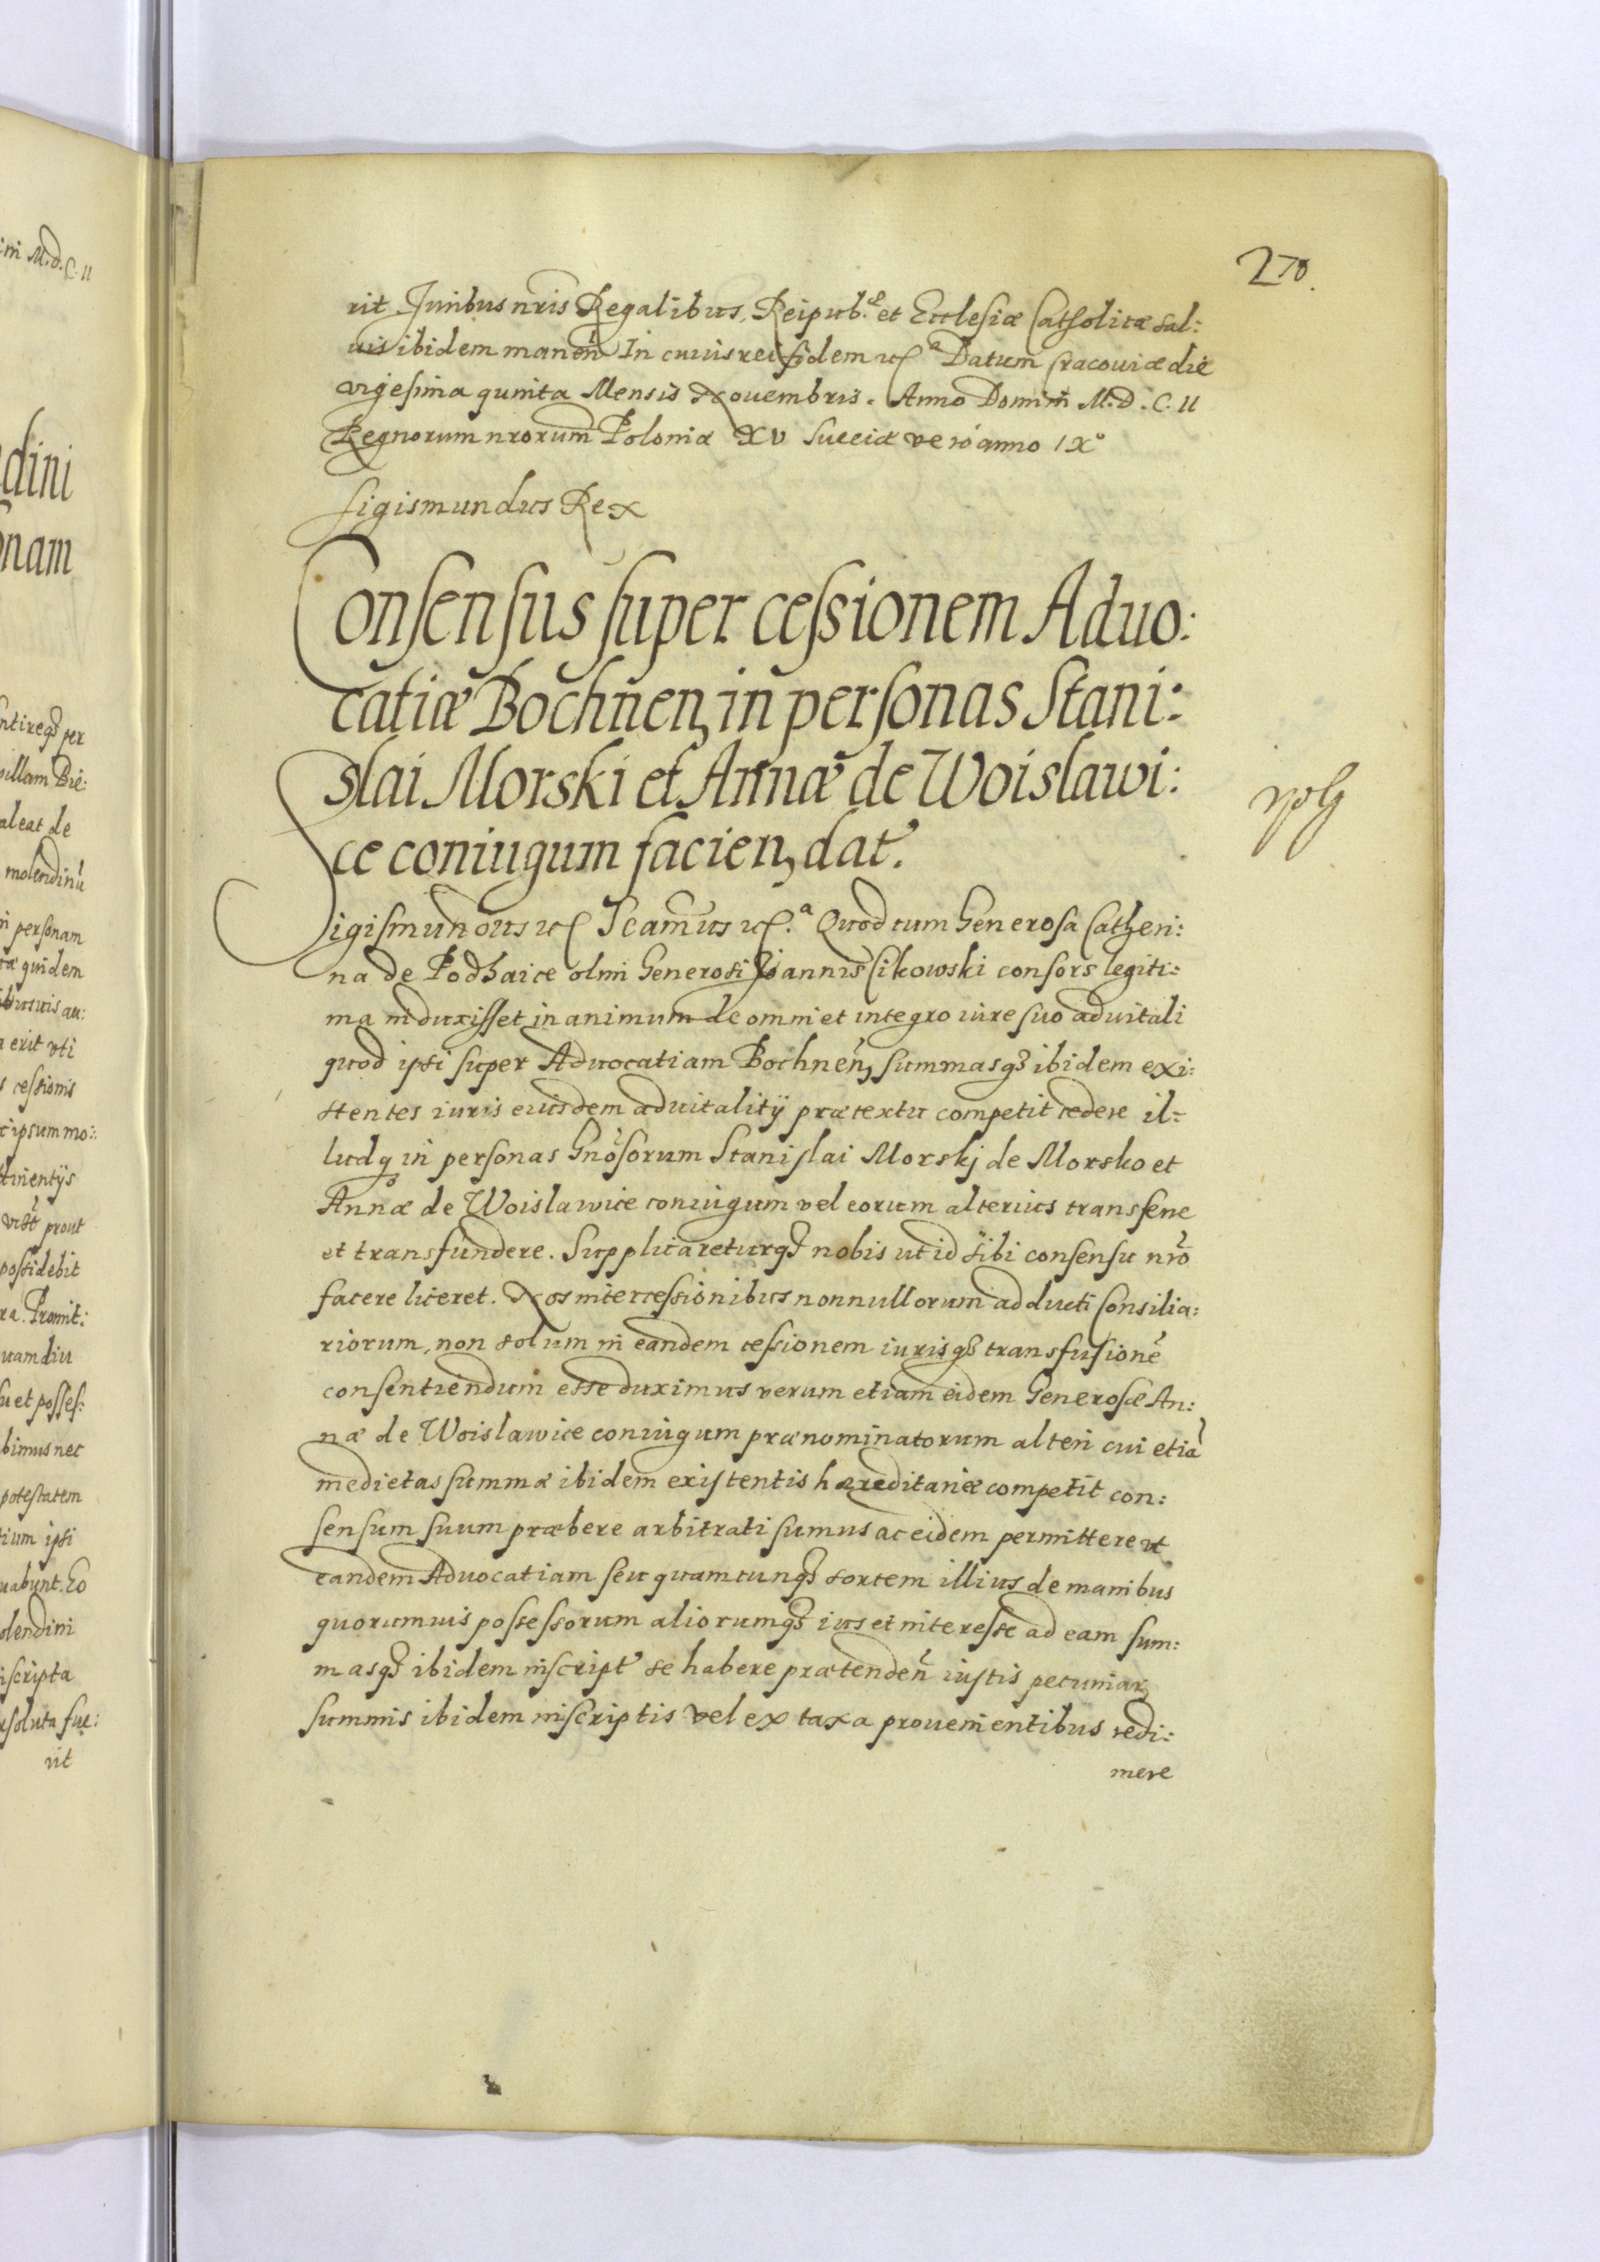 270.
rit Juribus nris Regalibus, Reipub. et Ecclesiæ Catholicæ sal:
uis ibidem manen̄ In cuius rei fidem etc.ᵃ Datum Cracouiæ die
vigesima quinta Mensis Nouembris. Anno Domini M.D.C.II
Regnorum nrorum Poloniæ XV Sueciæ vero anno IX°
Sigismundus Rex
Consensus super cessionem Aduo:
catiæ Bochnen, in personas Stani:
slai Morski et Annæ de Woislawi:
ce coniugum facien, dat.
Sigismundus etc. Scamus etc.ᵃ Quod cum Generosa Catheri:
na de Podhaice olim Generosi Joannis Cikowski consors legiti:
ma induxisset in animum de omni et integro iure suo aduitali
quod ipsi super Aduocatiam Bochnen, summasq3 ibidem exi:
stentes iuris eiusdem aduitalitÿ prætextu competit cedere il:
ludq in personas Gnosorum Stanislai Morskj de Morsko et
Annæ de Woislawice coniugum vel eorum alterius transferre
et transfundere. Supplicareturq3 nobis ut id sibi consensu nro
facere liceret. Nos intercessionibus nonnullorum adducti Consilia:
riorum, non solum in eandem cessionem iurisq3 transfusionē
consentiendum esse duximus verum etiam eidem Generosæ An:
næ de Woislawice coniugum prænominatorum alteri cui etiā
medietas summæ ibidem existentis hæreditariæ competit con:
sensum suum præbere arbitrati sumus ac eidem permittere ut
eandem Aduocatiam seu quamcunq3 sortem illius de manibus
quorumuis possessorum aliorumq3 ius et interesse ad eam sum:
masq3 ibidem inscript. se habere prætenden̄ iustis pecuniar,
summis ibidem inscriptis vel ex taxa prouenientibus redi:
mere